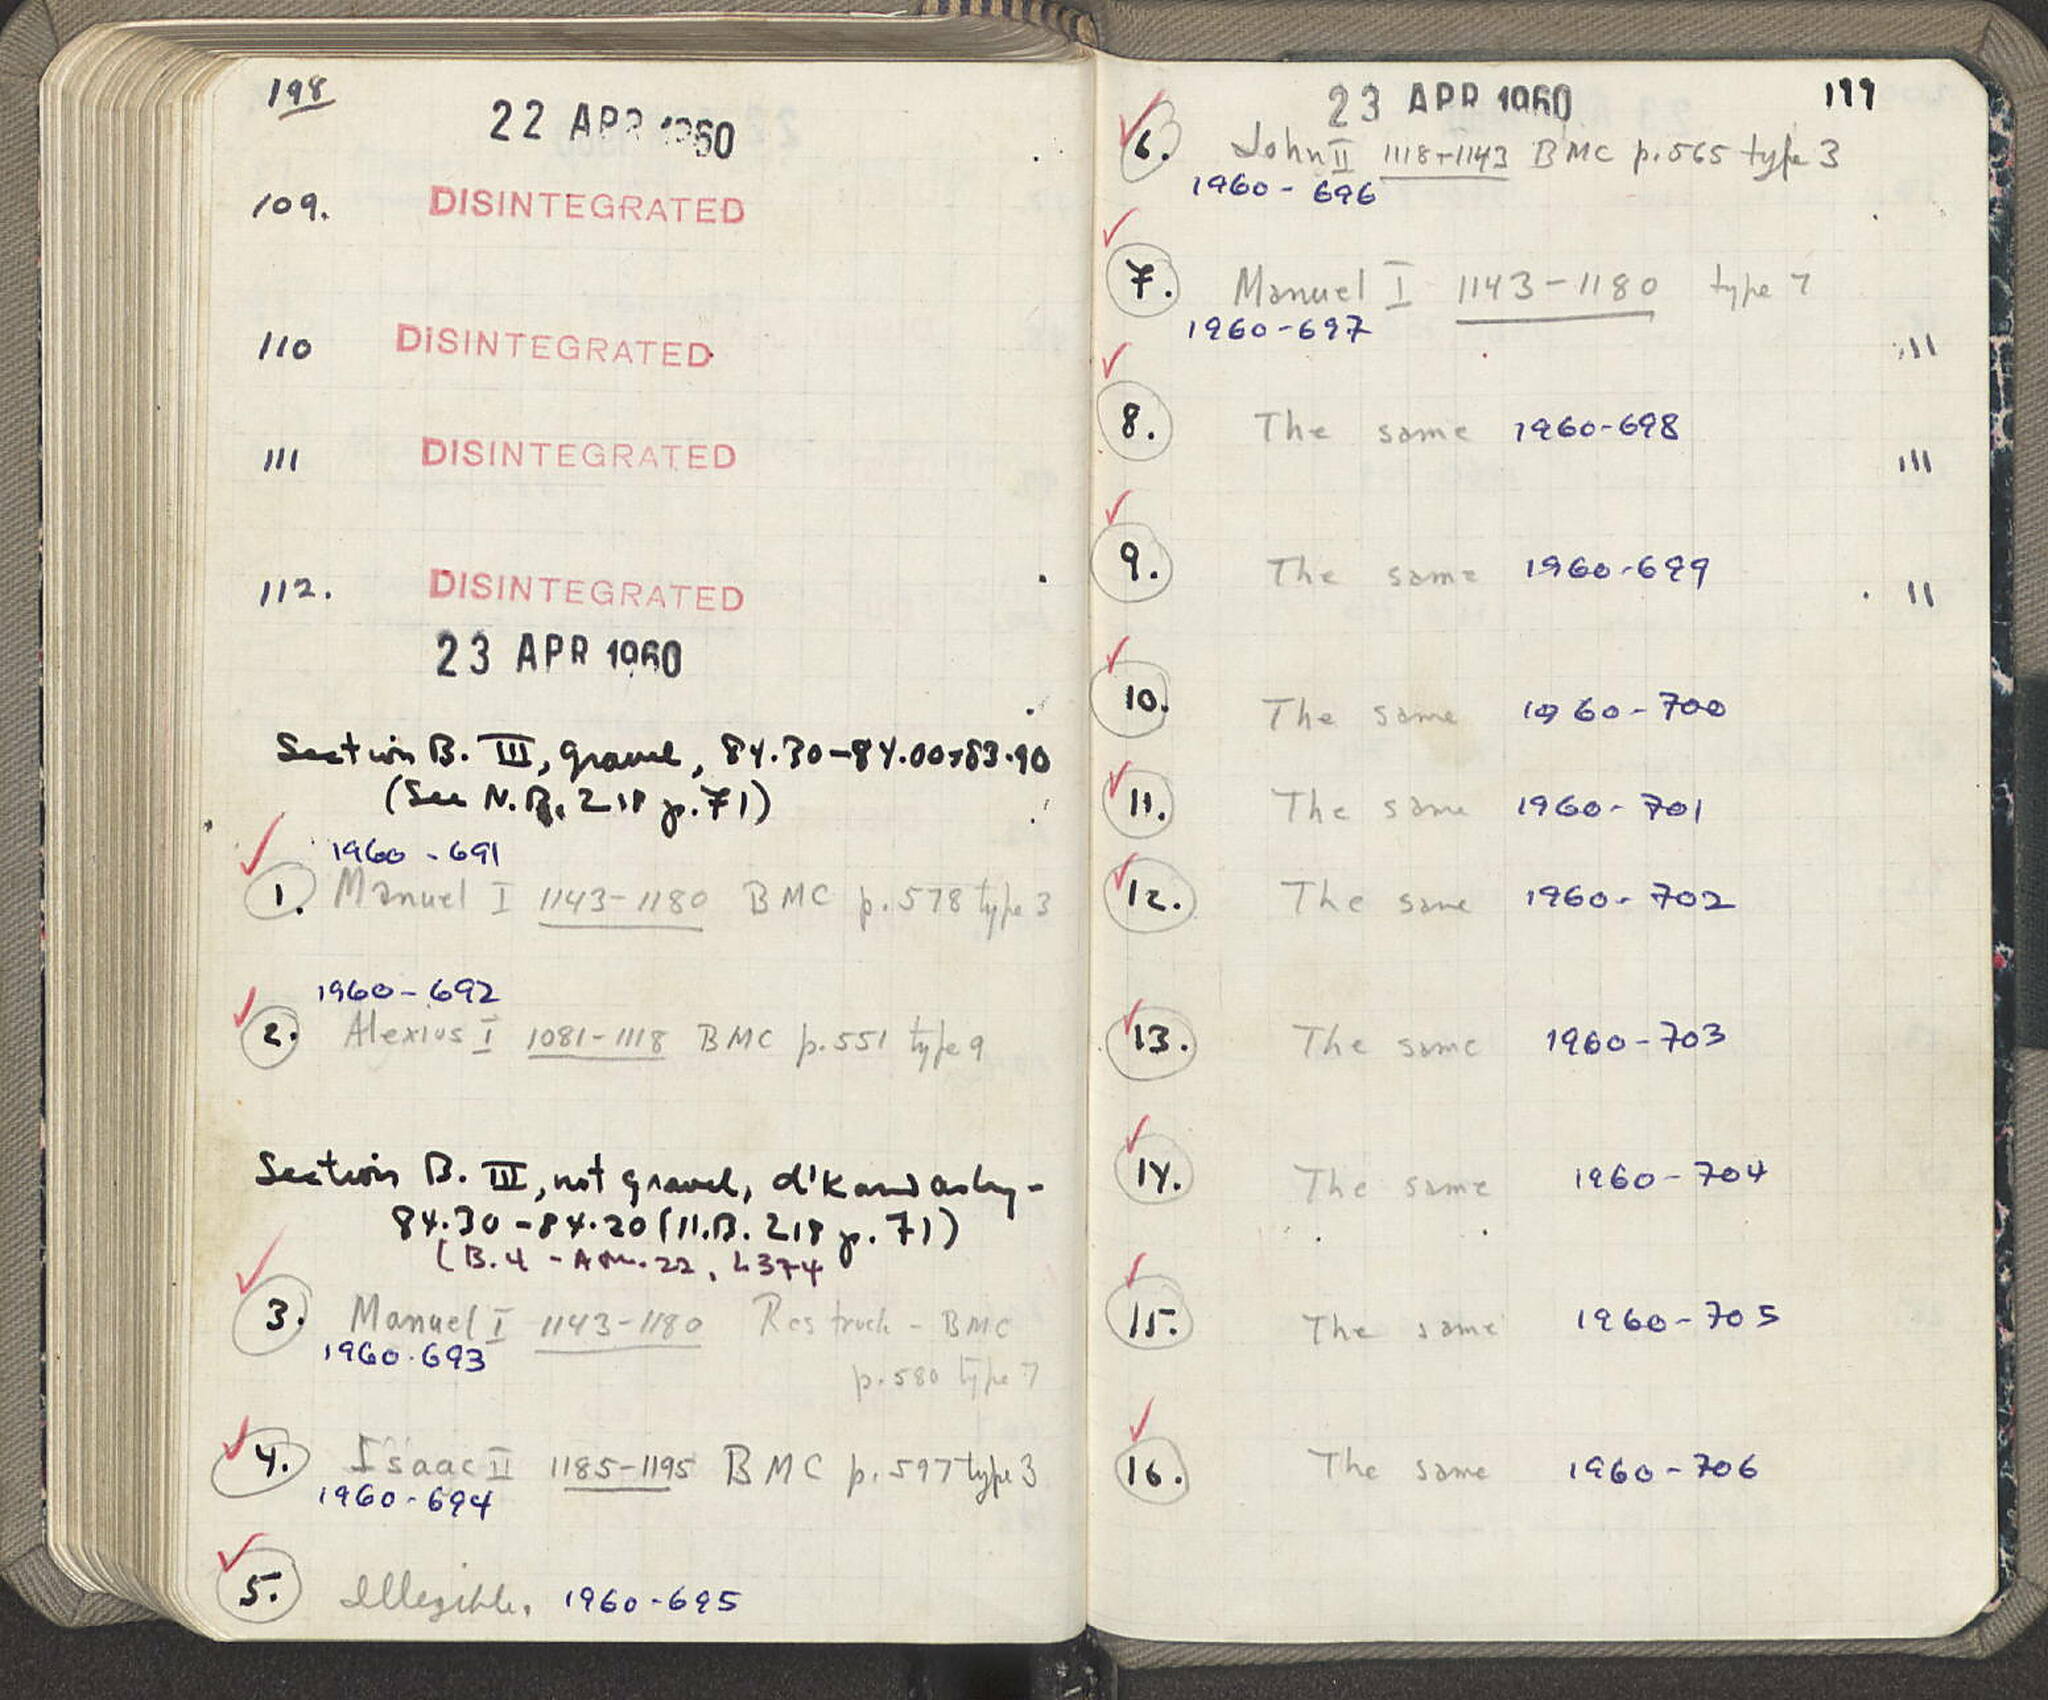 198
22 APR 1960
109. DISINTEGRATED
110 DISINTEGRATED
111 DISINTEGRATED
112. DISINTEGRATED
23 APR 1960
Section B. III, gravel, 84.30-84.00+83.90
(See N.B. 218 p.71)
1960-691
1. Manuel I 1143-1180 BMC p.578 type 3
1960-692
2. Alexius I 1081-1118 BMC p.551 type 9
Section B. III, not gravel, d'k and ashy-
84.30-84.20 (N.B. 218 p.71)
(B.4 - 22, L374
3. Manuel I 1143-1180 Restruck - BMC
1960-693
p.580 type 7
4. Isaac II 1185-1195 BMC p.597 type 3
1960-694
5. Illegible. 1960-695
23 APR 1960
199
6. John II 1118-1143 BMC p.565 type 3
1960-696
7. Manuel I 1143-1180 type 7
1960-697
8. The same 1960-698
9. The same 1960-699
10. The same 1960-700
11. The same 1960-701
12. The same 1960-702
13. The same 1960-703
14. The same 1960-704
15. The same 1960-705
16. The same 1960-706